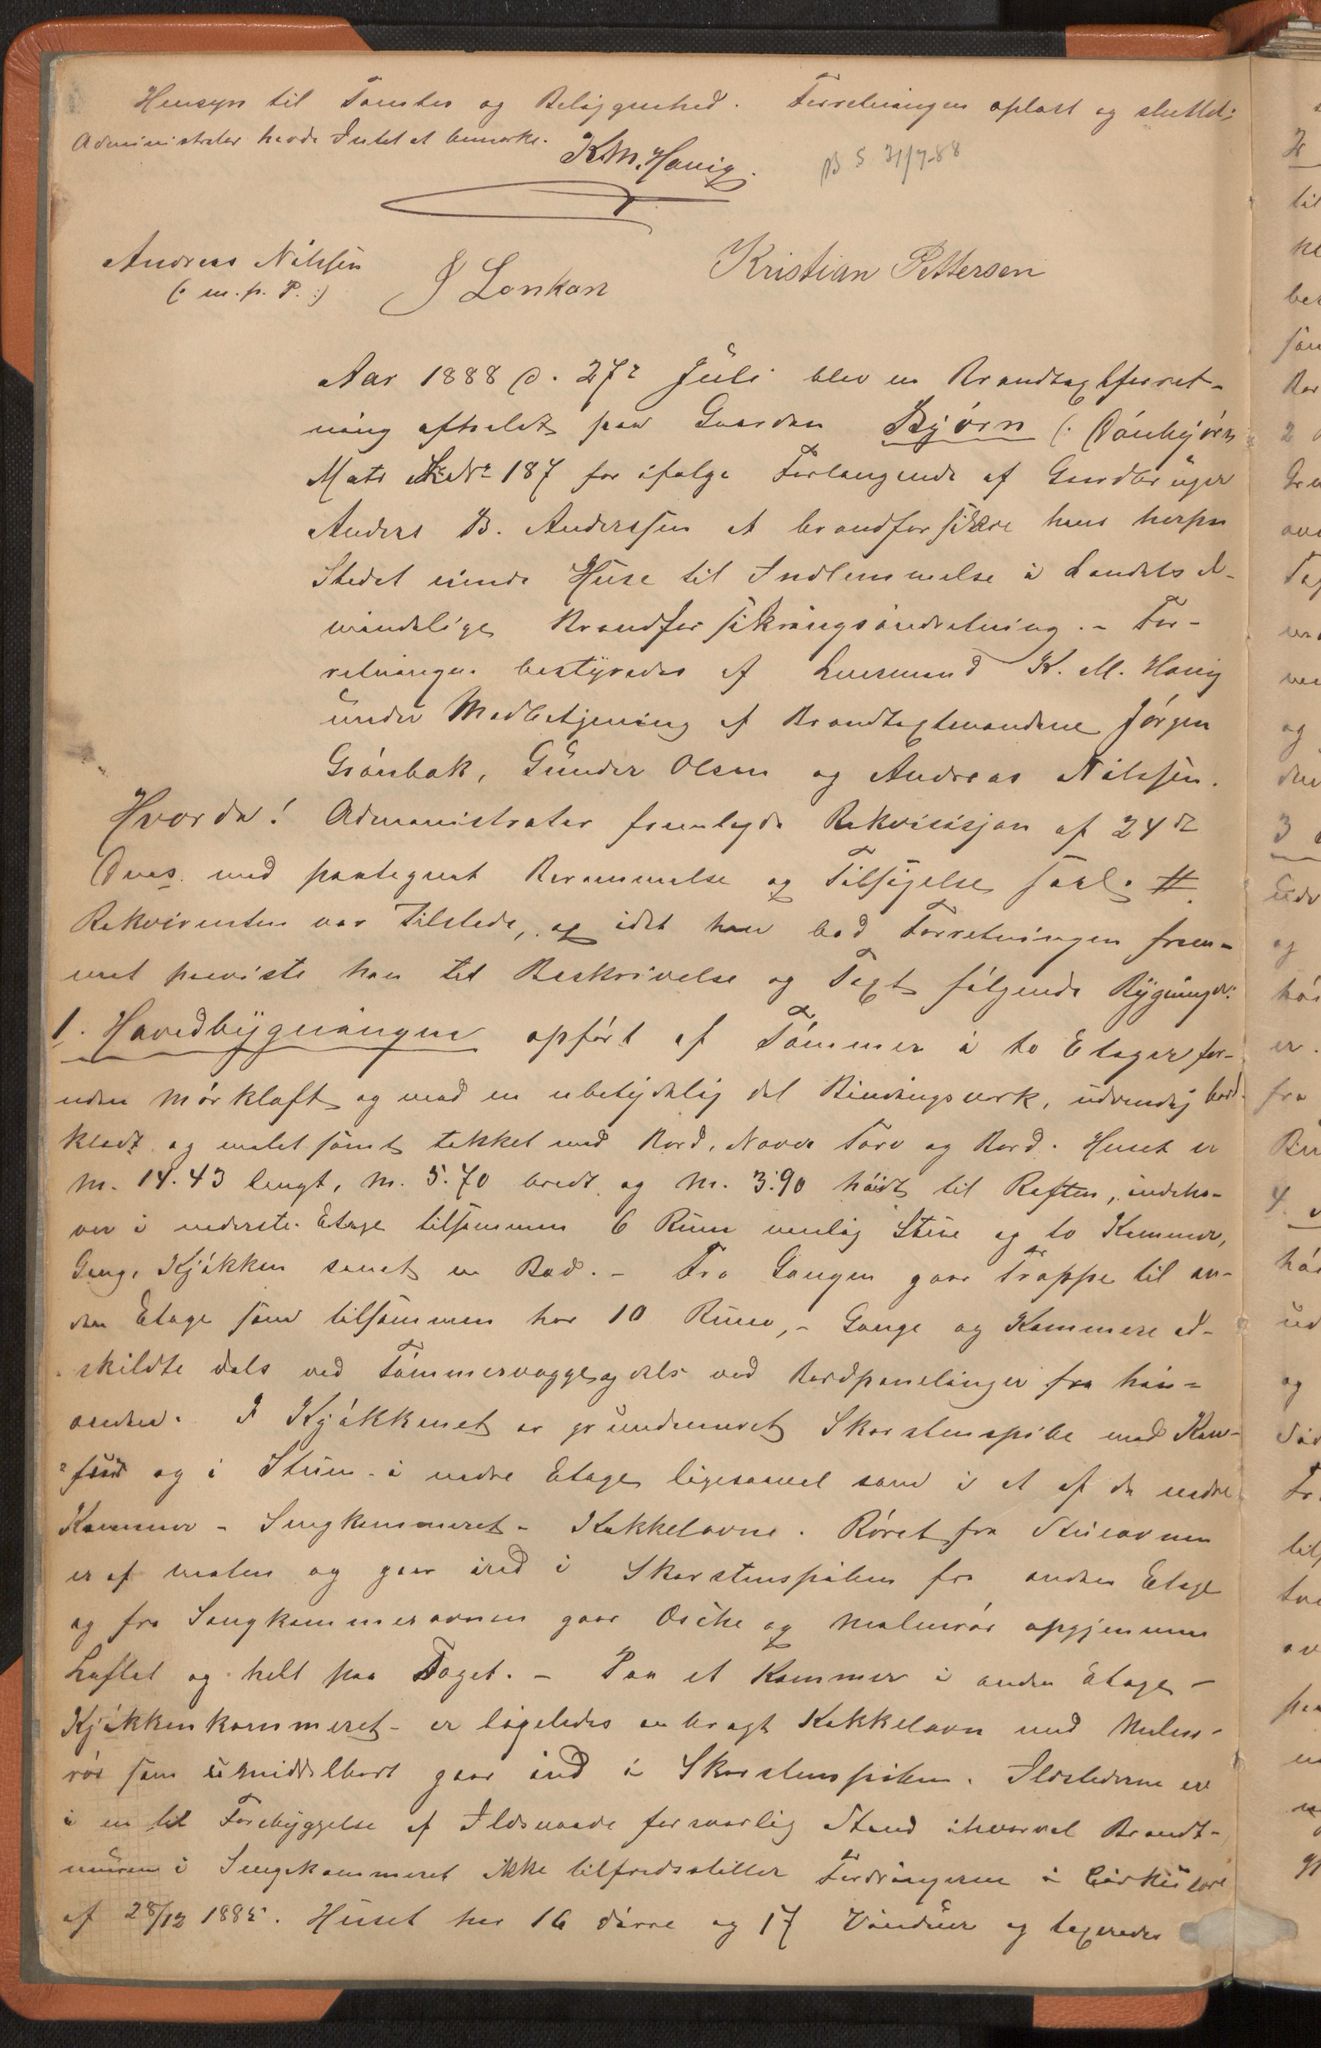 Hensyn til Tomten og Beliggenhed. Forretningen oplæst og sluttet;
Administrator havde Intet at bemærke.
K.M. Havig.
B S 31/7-88
Andreas Nilssen
(: m. p. P. :)
J Lonkan
Kristian Pettersen
Aar 1888 d. 27de Juli blev en Brandtaxtforret-
ning afholdt paa Gaarden Bjørn (: Dönbjörn
Matr LNr 187 for ifølge Forlangende af Gaardbruger
Anders B. Anderssen at brandforsikre hans herpaa
Stedet eiende Huse til Indlemmelse i Landets al-
mindelige Brandforsikringsindretning. - For-
retningen bestyredes af Lensmand K. M. Havig
under Medbetjening af Brandtaxtmændene Jörgen
Grönbæk, Gunder Olsen og Andreas Nilssen.
Hvorda! Administrator fremlagde Rekvisisjon af 24de
Dms. med paategnet Berammelse og Tilsigelse saal. #
Rekvirenten var tilstede, og idet han bad Forretningen frem-
met paaviste han til Beskrivelse og Taxt fölgende Bygninger:
1. Hovedbygningen opfört af Tömmer i to Etager for-
uden Mörkloft og med en ubetydelig del Bindingsverk, udvendig bord-
klædt og malet samt tækket med Bord, Næver Torv og Bord. Huset er
M. 14.43 langt, M. 5.70 bredt og M. 3.90 höit til Raften, indeho-
ver i nederste Etage tilsammen 6 Rum nemlig Stue og to Kammer,
Gang, Kjökken samt en Bod. - Fra Gangen gaar Trappe til an-
den Etage som tilsammen har 10 Rum, - Gange og Kammere ad-
skildte dels ved Tömmervægge og dels ved Bordpanelinger fra hin-
anden. I Kjökkenet er grundmuret Skorstenspibe med Kom-
fur og i Stuen i nedre Etage ligesaavel som i et af de nedre
Kammer - Sengkammeret - Kakkelovne. Röret fra Stueovnen
er af malm og gaar ind i Skorstenspiben fra anden Etage
og fra Sengkammerovnen gaar Osche og Malmrör opgjennem
Loftet og helt paa Taget. - Paa et Kammer i anden Etage -
Kjökkenkammeret - er ligeledes anbragt Kakkelovn med Malm-
rör som umiddelbart gaar ind i Skorstenspiben. Ildstederne er
i en til Forebyggelse af Ildsvaade forsvarlig Stand ihvorvel Brandt-
muren i Sengekammeret ikke tilfredsstiller Fordringerne i Cirkulære
af 28/12 1885. Huset har 16 dörre og 17 Vinduer og taxeredes